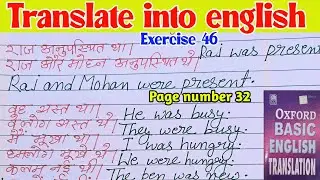 Translate into english
Exercise 46
राज अनुपस्थित था। Raj was present
राज और मोहन अनुपस्थित थे।
Raj and Mohan were present.
Page number 32
वह व्यस्त था। He was busy.
वे लोग व्यस्त थे। They were busy.
मैं भूखा था। I was hungry.
हमलोग भूखे थे। We were hungry.
कलम नई थी। The pen was new.
OXFORD
BASIC
ENGLISH
TRANSLATION